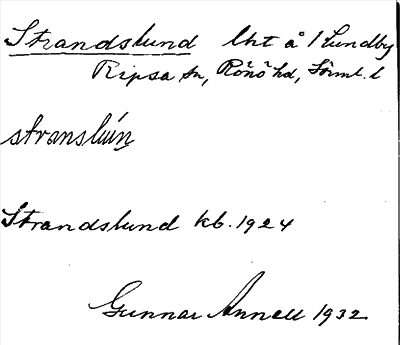 Strandslund lht å 1 Lundby
Ripsa sn, Rönö hd, Sörml. l
Strandslund kb. 1924
Gunnar Annell 1932